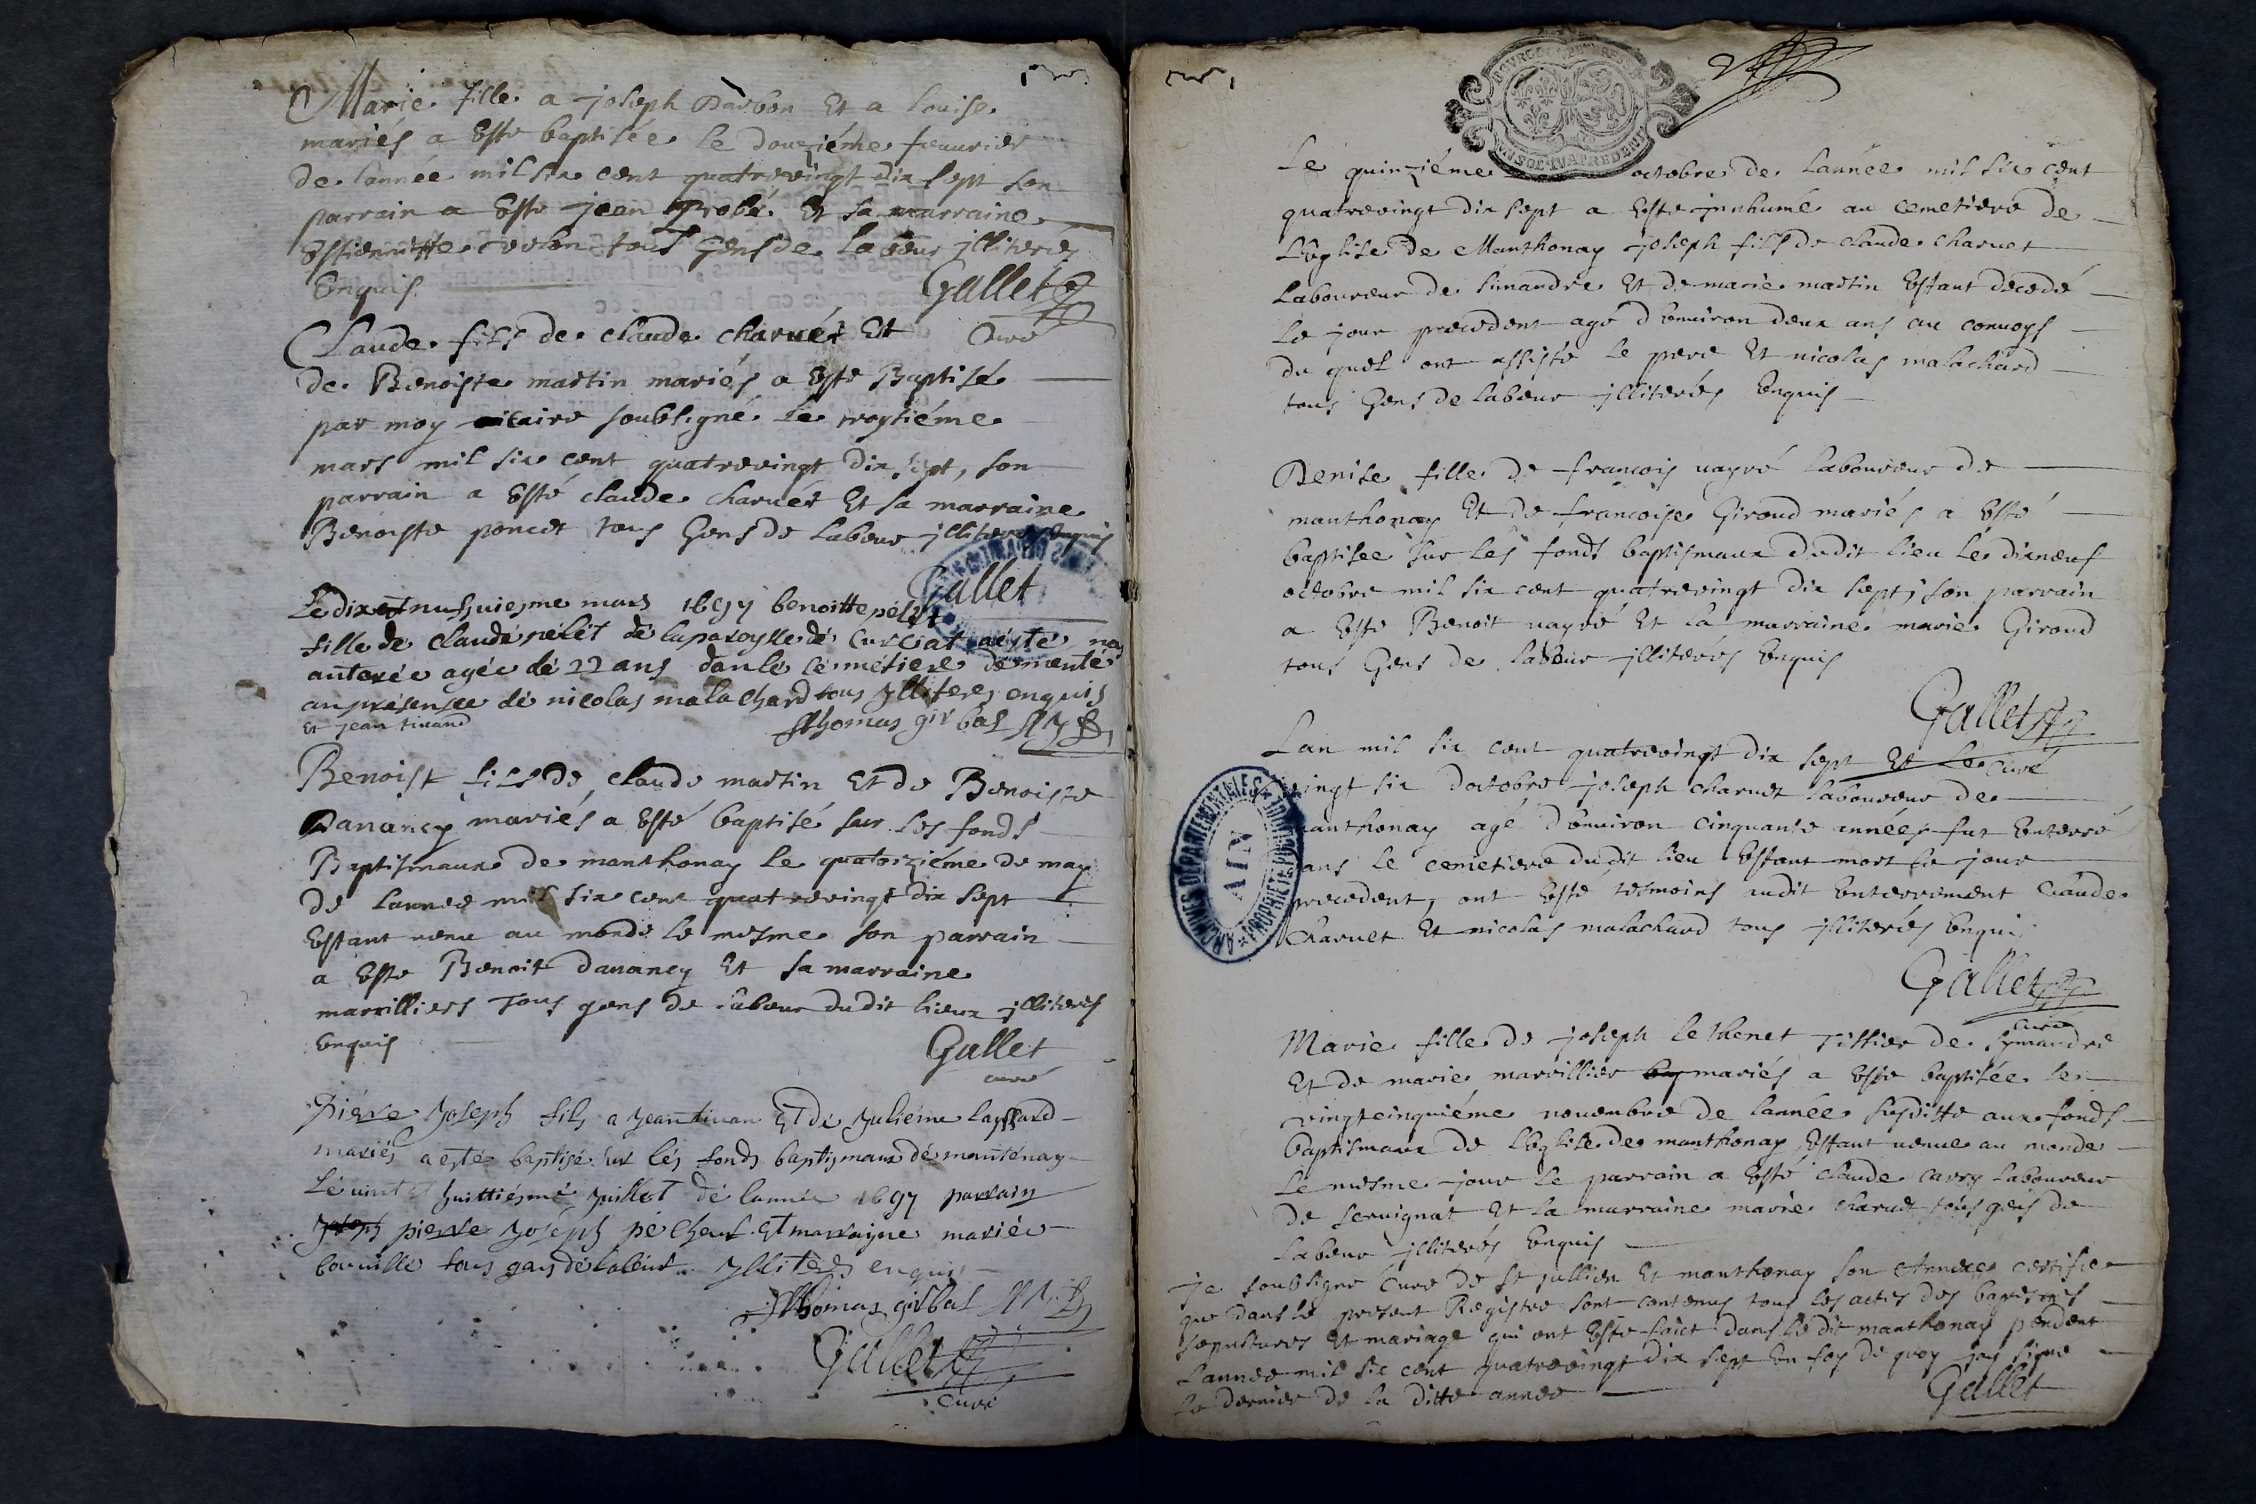 Marie fille a joseph Darbon Et a Louise
mariés a Esté baptisée le douziéme feaurier
de l'année mil six cent quatrevingt dix sept son
parrain a Esté jean Probé Et sa marraine
Estiennette tous Gens de labeur jlliterés
Enquis Gallet
Curé
Claude fils de claude charuét Et
de Benoiste martin mariés a Esté Baptisé
par moy vicaire soubsigné le troysiéme
mars mil six cent quatrevingt dix sept, son
parrain a Esté claude charuét Et sa marraine
Benoiste poncet tous Gens de labeur jlliterés Enquis
Gallet
Le dix et nufuiesme mars 1697 benoitte pélét
fille de claude pélét de la paroysse de Curciat aesté
anterée agée de 22 ans dan le cemetiere de
an présensce dé nicolas malachard tous ylliteres enquis
et jean tinand Thomas girbal
Benoist fils de claude martin Et de Benoiste
Danancy mariés a Esté baptisé sur les fonds
Baptismaux de manthonay le quatorziéme de may
de l'année mil six cent quatrevingt dix sept
Estant venu au monde le mesme son parrain
a Esté Benoit Danancy Et sa marraine
marilliers Tous gens de labeur dudit lieux jlliterés
Enquis Gallet
curé
Piérre Joseph fils a jean tinan Et dé Juliéine
mariés a esté baptisé sur lés fonds baptismaux dé manténay
Lé vint et huittiésme juillet dé lannée 1697 parrain
Joseph pierre Joséph Et marrayne mariée
tous gans dé labéur ylliterés enquis
Thomas girbal
Gallet
Curé
Le quinziéme octobre de l'année mil six cent
quatrevingt dix sept a Esté jnnhumé au cemetiere de
L'Eglise de Manthonay joseph fils de claude charuet
Laboureur de simandre Et de marie martin Estant decedé
Le jour precedent agé d'enuiron deux ans au conuoys
du quel ont assisté le pere Et nicolas malachard
tous Gens de labeur jlliterés Enquis
Denise fille de françois uayré laboureur de
manthonay Et de françoise Giroud mariés a Esté
baptisée sur les fonds baptismaux dudit lieu le dixneuf
octobre mil six cent quatrevingt dix sept, son parrain
a Esté Benoit uayré Et la marraine marie Giroud
tous Gens de labeur jlliterés Enquis
Gallet
Curé
L'an mil six cent quatrevingt dix sept Et le
vingt six d'octobre joseph charuet laboureur de
manthonay agé d'enuiron cinquante années fut Enterré
dans le cemetiere dudit lieu Estant mort le jour
precedent, ont Esté tesmoins audit Enterrement Claude
charuet Et nicolas malachard tous jlliterés Enquis
Gallet
Curé
Marie fille de joseph le thenet Tissier de Symandre
Et de marie marillier mariés a Esté baptisée le
vingtcinquiéme nouembre de l'année susditte aux fonds
baptismaux de L'Eglise de manthonay Estant venue au monde
Le mesme jour Le parrain a Esté claude carry Laboureur
de seruignat Et la marraine marie charuet tous géns de
Labeur jlliterés Enquis
Je soubsigné Curé de St jullien Et manthonay son Annexe certifie
que dans le present Registre sont contenus tous les actes des baptesmes
sepultures Et mariage qui ont Esté faict dans le dit manthonay pendent
L'année mil six cent quatrevingt dix sept En foy de quoy jay signé
Le dernier de la ditte année
Gallet
ARCHIVES DEPARTEMENTALES
AIN
PROPRIETE PUBLIQUE